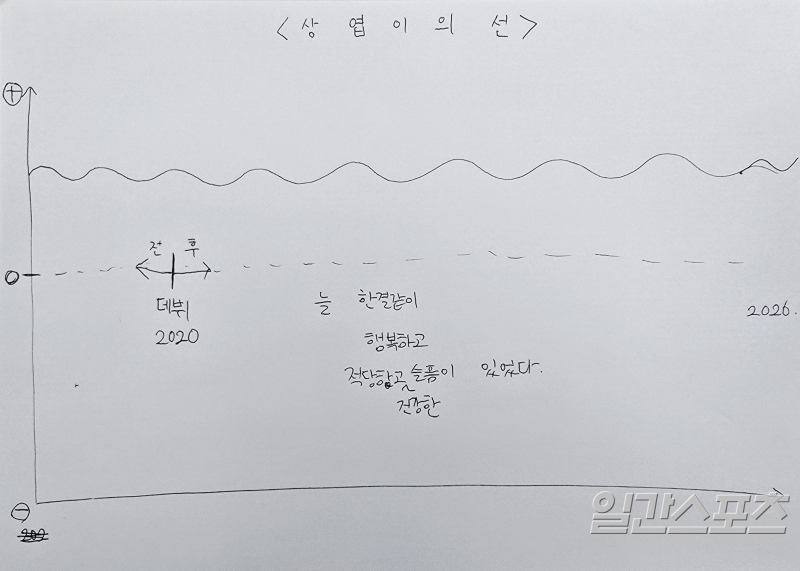 <상엽이의 선>
+
전 후
0
데뷔
2020
늘 한결같이
2026.
행복하고
적당하고 슬픔이 있었다.
건강한
-
일간스포츠